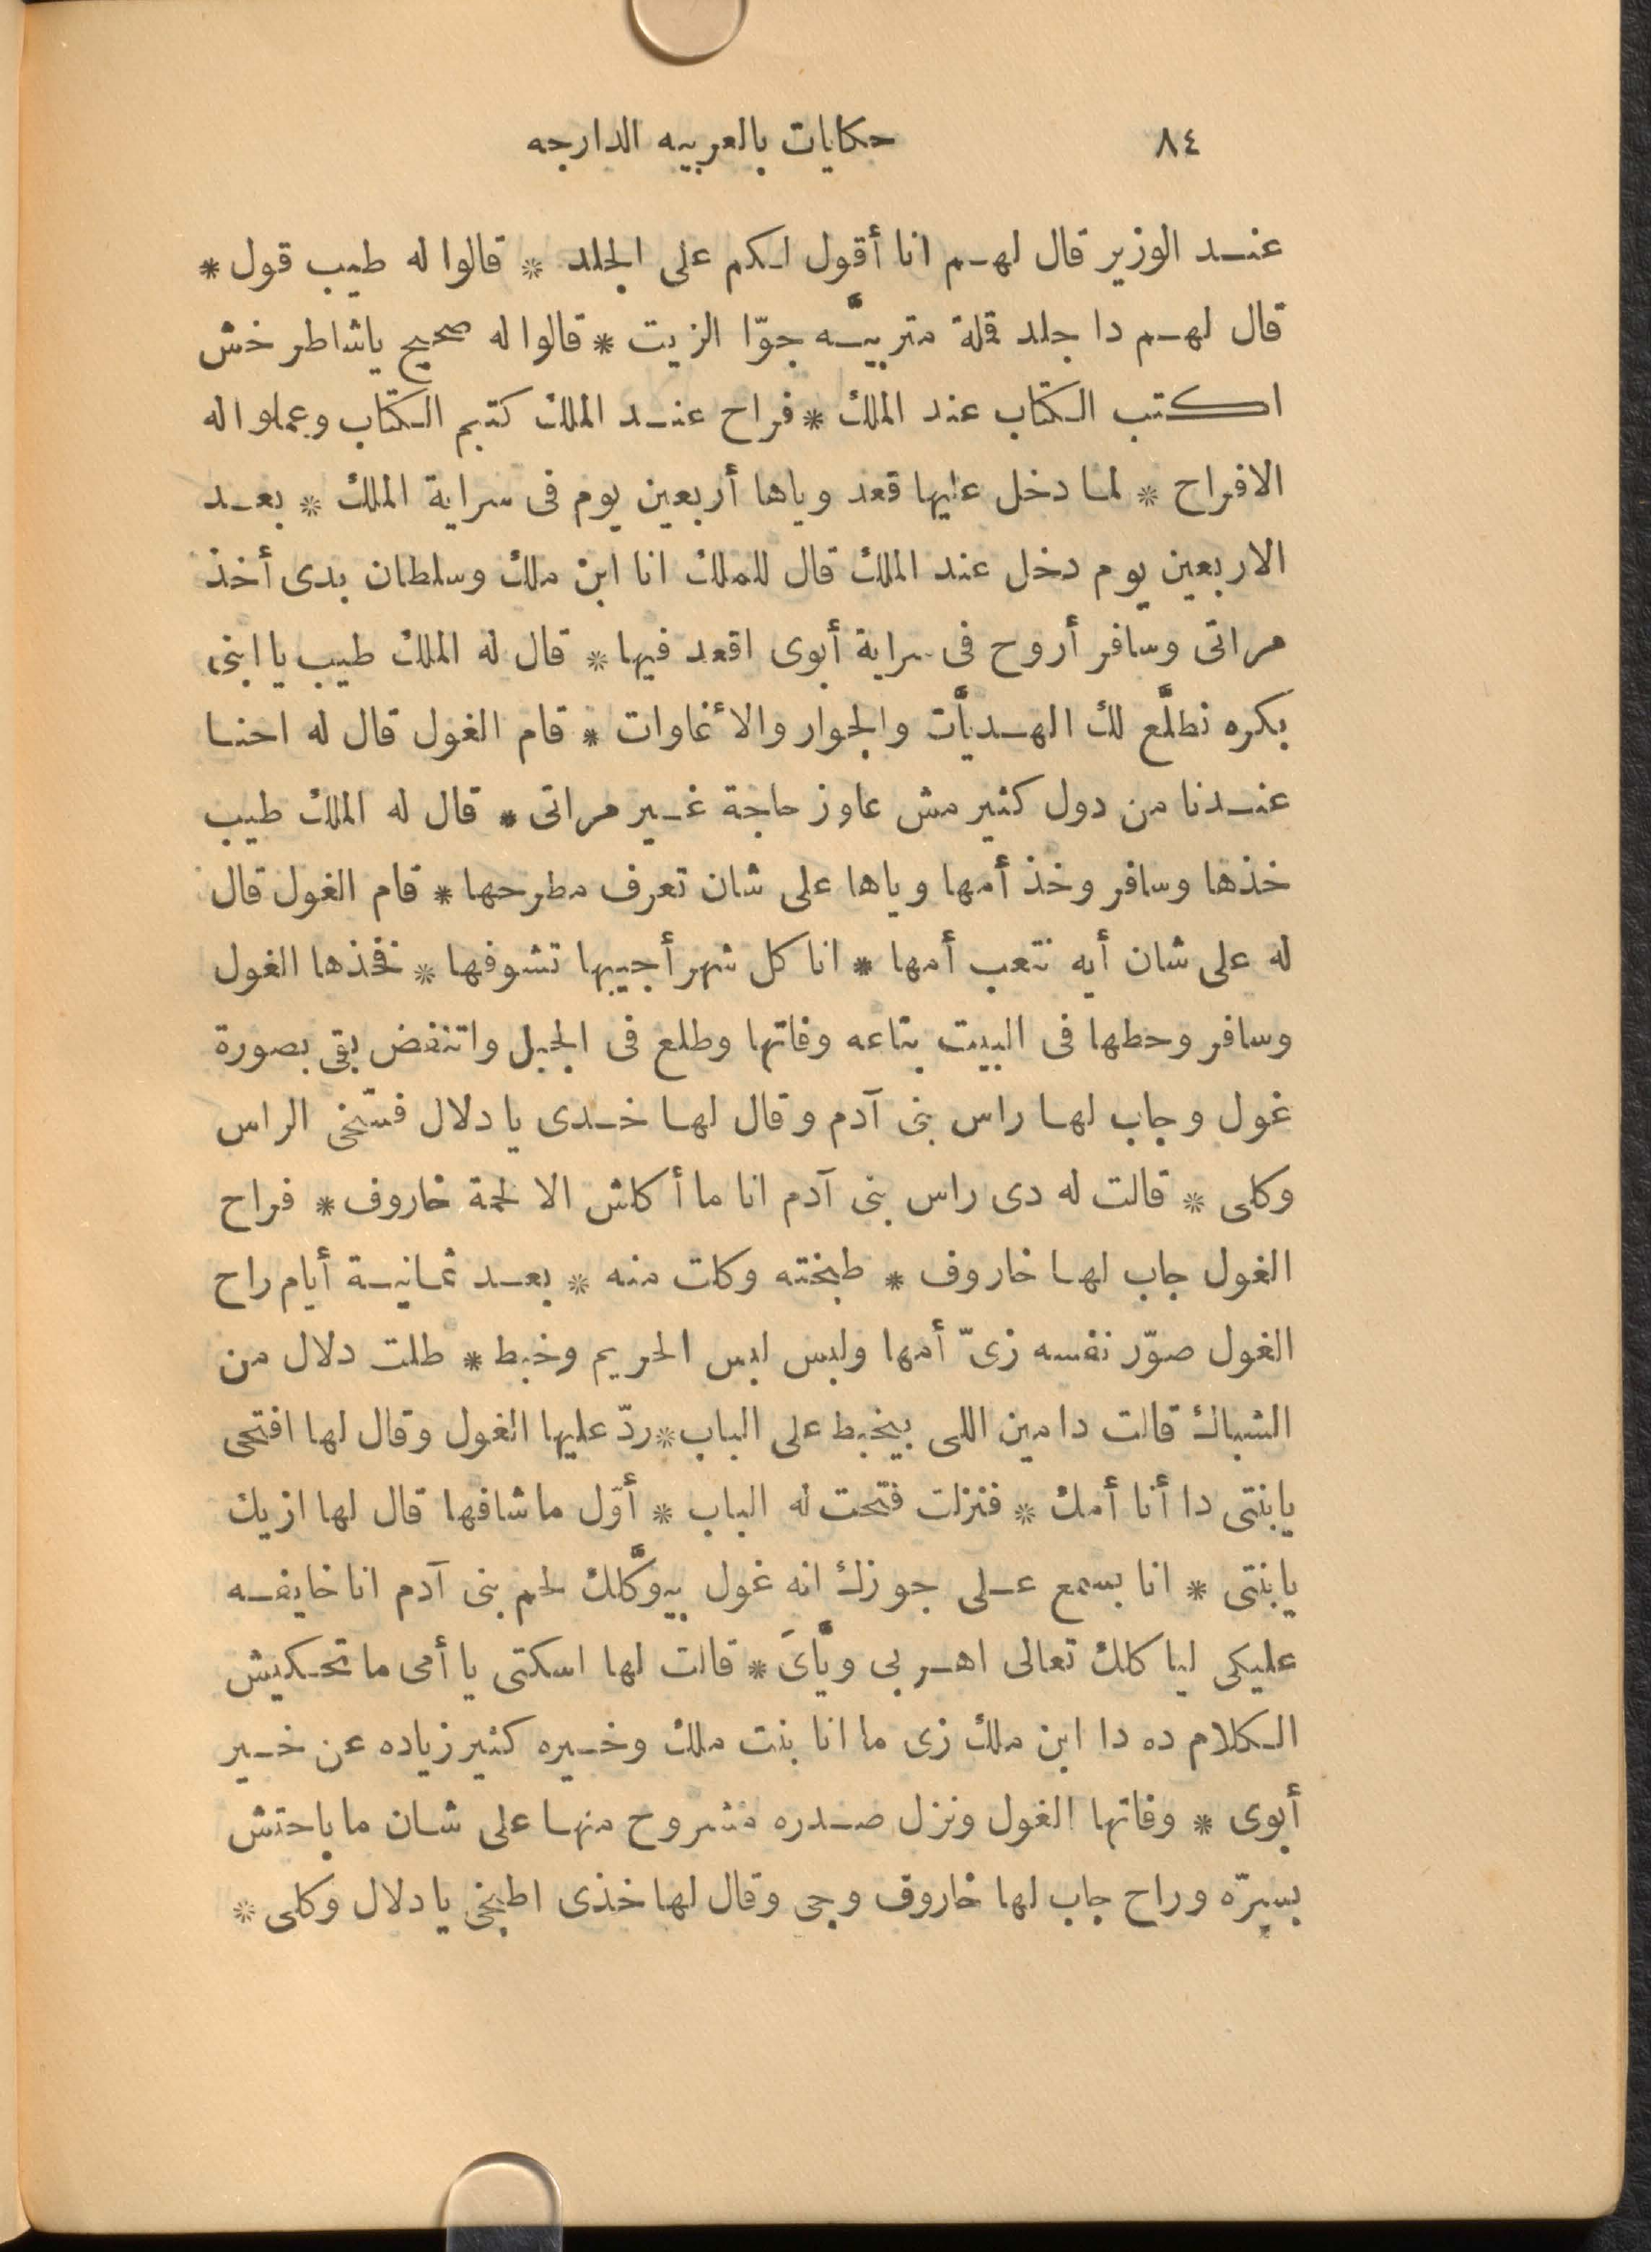 ٨٤ حكايات بالعربيه الدارجه
عند الوزير قال لهم انا أقول لكم على الجلد * قالوا له طيب قول *
قال لهم دا جلد قملة متربيَّه جوّا الزيت * قالوا له صحيح ياشاطر خش
اكتب الكتاب عند الملك * فراح عند الملك كتبم الكتاب وعملوا له
الافراح * لما دخل عليها قعد وياها أربعين يوم فى سراية الملك * بعد
الاربعين يوم دخل عند الملك قال للملك انا ابن ملك وسلطان بدى أخذ
مراتى وسافر أروح فى سراية أبوى اقعد فيها * قال له الملك طيب يا ابنى
بكره نطلَّع لك الهديَّات والجوار والأغاوات * قام الغول قال له احنا
عندنا من دول كثير مش عاوز حاجة غير مراتى * قال له الملك طيب
خذها وسافر وخذ أمها وياها على شان تعرف مطرحها * قام الغول قال
له على شان أيه نتعب أمها * انا كل شهر أجيبها تشوفها * فخذها الغول
وسافر وحطها فى البيت بتاعه وفاتها وطلع فى الجبل واتنفض بقى بصورة
غول وجاب لها راس بنى آدم وقال لها خدى يا دلال فسّخى الراس
وكلى * قالت له دى راس بنى آدم انا ما أكلش الا لحمة خاروف * فراح
الغول جاب لها خاروف * طبخته وكلت منه * بعد ثمانية أيام راح
الغول صوّر نفسه زىّ أمها ولبس لبس الحريم وخبط * طلت دلال من
الشباك قالت دا مين اللى بيخبط على الباب * ردّ عليها الغول وقال لها افتحى
يابنتى دا أنا أمك * فنزلت فتحت له الباب * أوّل ماشافها قال لها ازيك
يابنتى * انا بسمع على جوزك انه غول بيوكَّلك لحم بنى آدم انا خايفه
عليكى لياكلك تعالى اهربى ويَّاىَ * قالت لها اسكتى يا أمى ما تحكيش
الكلام ده دا ابن ملك زى ما انا بنت ملك وخيره كثير زياده عن خير
أبوى * وفاتها الغول ونزل صدره مشروح منها على شان ما باحتش
بسرّه وراح جاب لها خاروف وجى وقال لها خذى اطبخى يا دلال وكلى *